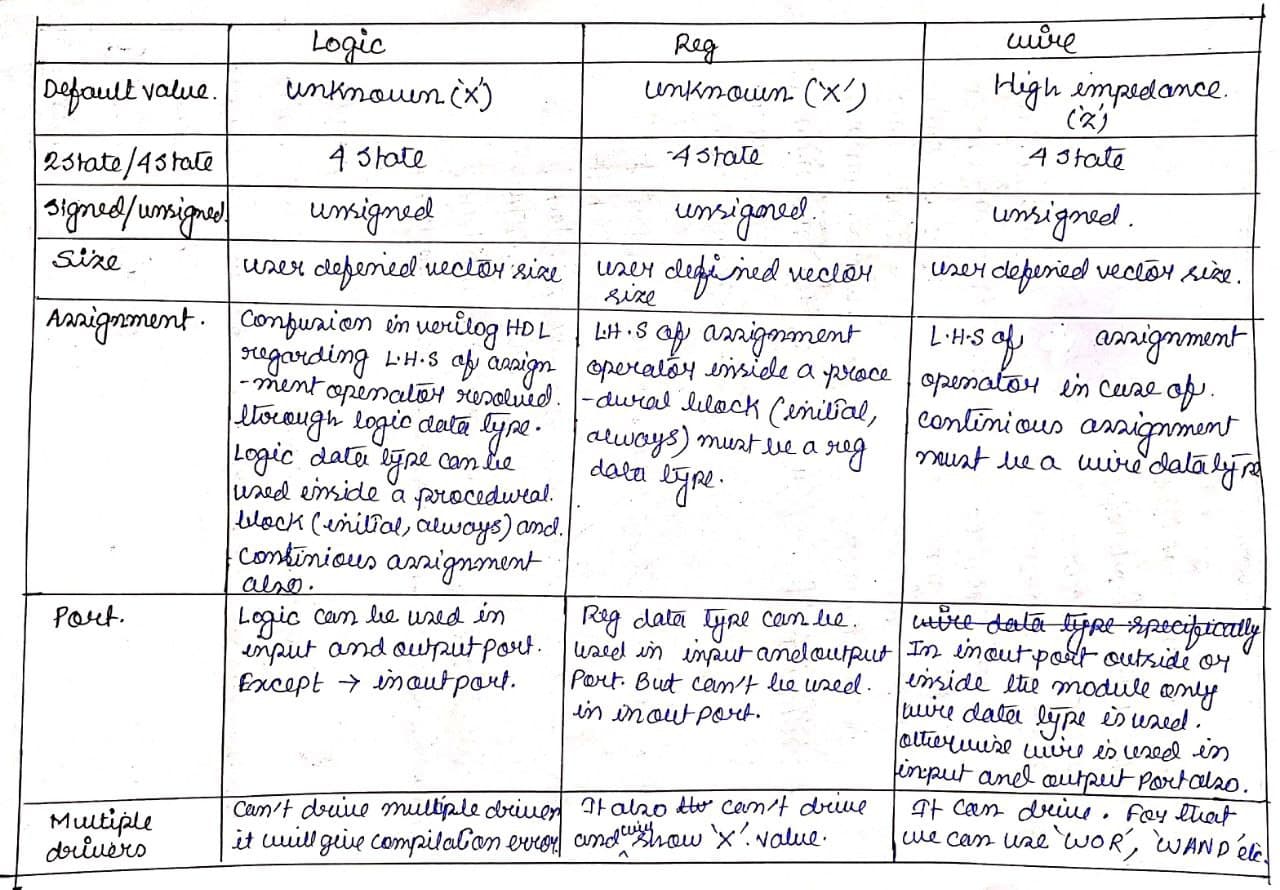 Logic Reg wire
Default value. unknown ('x') unknown ('x') High impedance.
('z')
2state/4state 4 state 4 state 4 state
Signed/unsigned. unsigned unsigoned. unsigned.
Size. user defenied vector size user defined vector user defenied vector size.
size
Assignment.
Confusion in verilog HDL
regarding L.H.S of assign
-ment openator resolved.
through logic data type.
Logic data type can be
used inside a procedural.
block (initial, always) and.
continious assignment
also.
L.H.S of assignment
operator inside a proce
-dural block (initial,
always) must be a reg
data type.
L.H.S of assignment
openator in case of.
continious assignment
must be a wire data type
Port.
Logic can be used in
input and output port.
Except → inout port.
Reg data type can be.
used in input and output
Port. But can't be used.
in inout port.
wire data type specifically
In inout port outside or
inside the module only
wire data type is used.
otherwise wire is used in
input and output port also.
Multiple
drivers
Can't drive multiple driver
it will give compilation error.
It also can't drive
and will show 'X'. value.
It can drive. For that
we can use 'WOR', 'WAND' etc.